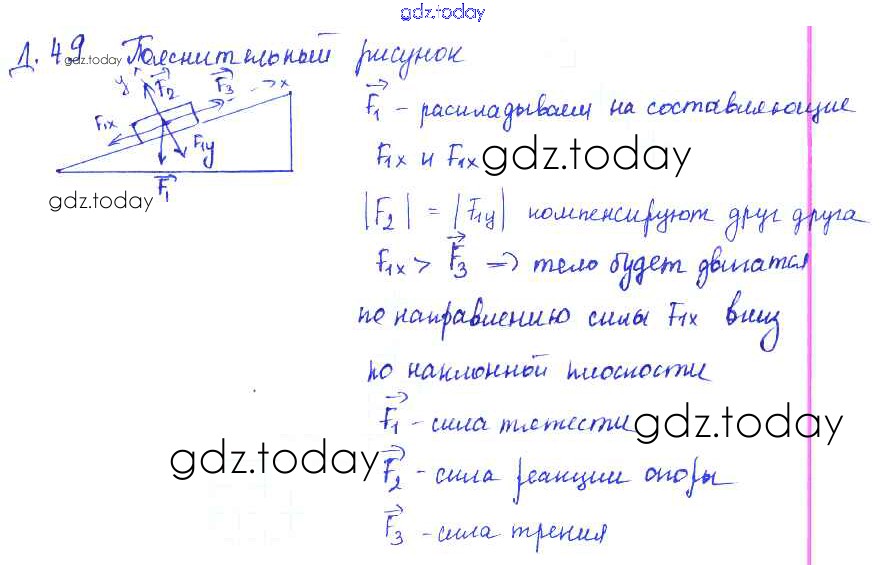 gdz.today
Д. 49 gdz.today Пояснительный рисунок
y F₂ F₃ x
F₁x F₁y
F₁
gdz.today
F₁ - раскладываем на составляющие
F₁x и F₁x gdz.today
|F₂| = |F₁y| компенсируют друг друга
F₁x > F₃ => тело будет двигатся
по направлению силы F₁x вниз
по наклонной плоскости
F₁ - сила тяжести gdz.today
gdz.today F₂ - сила реакции опоры
F₃ - сила трения